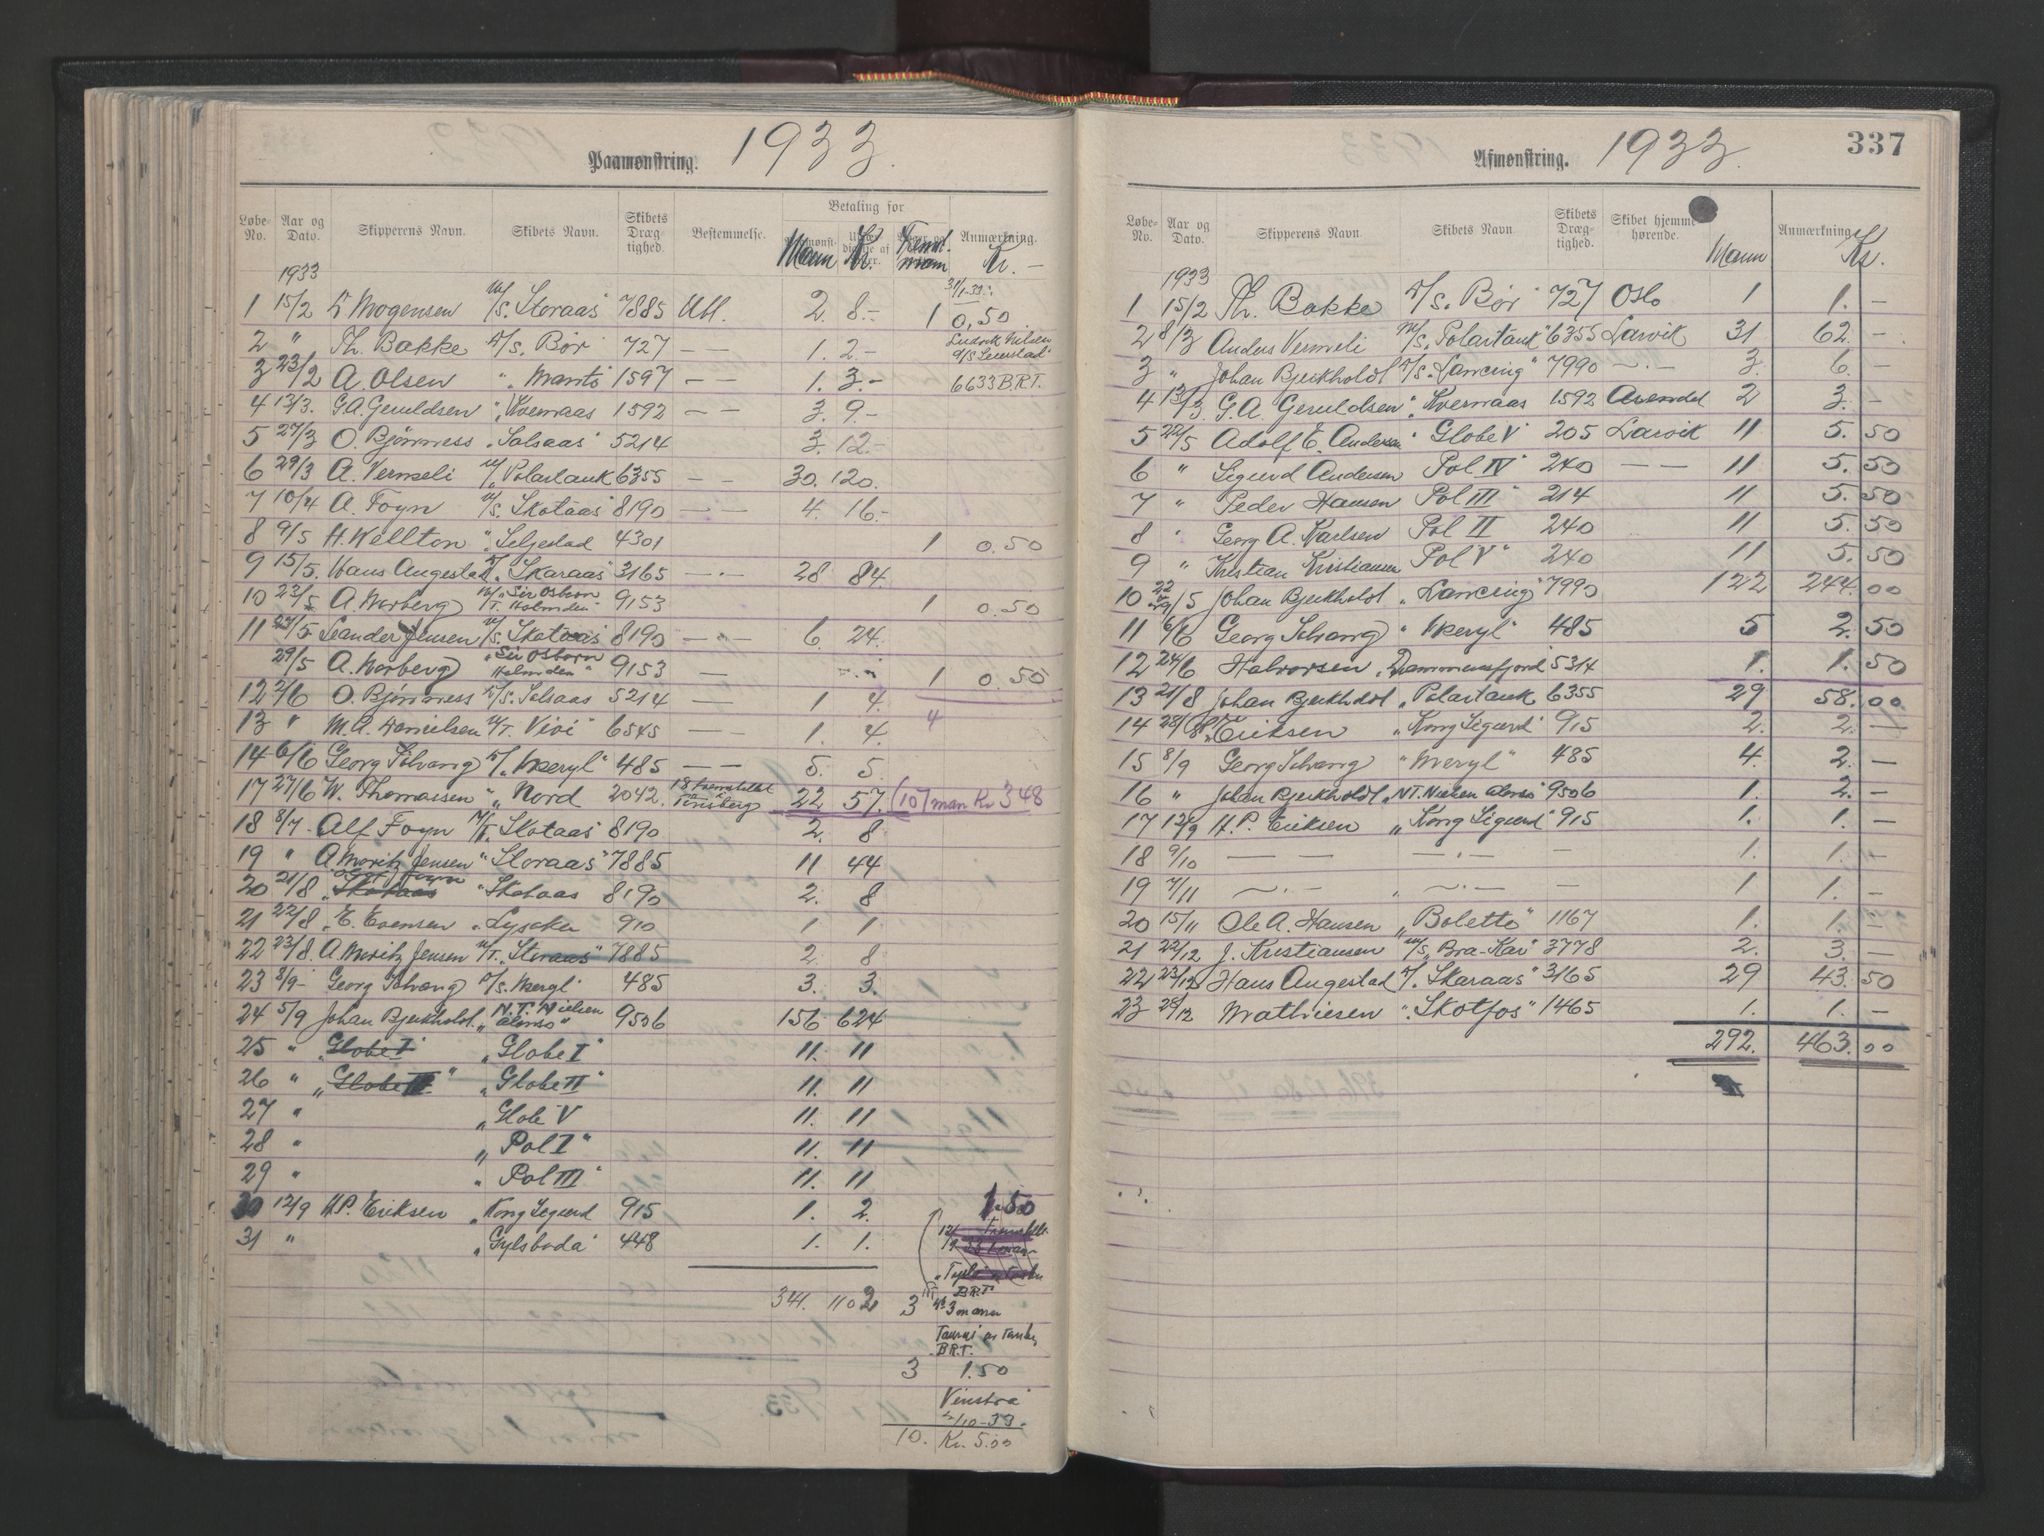 Paamønstring. 1933.
Løbe-No. Aar og Dato. Skipperens Navn. Skibets Navn. Skibets Dræg-tighed. Bestemmelse. Betaling for Mann Kr. Fremt. mann Anmærkning. Kr. –
1933 31/1-33.
1 15/2 Mogensen M/S. Storaas 7885 Utl. 2. 8.- 1 0,50
2 " Th. Bakke D/S. Bør 727 — 1. 2.- Ludvik Nilsen
3 23/2 A. Olsen ". Mantö 1597 — — 1. 3.- 6633 B.R.T.
4 13/3. G.A. Geruldsen ". Kvernaas 1592 — — 3. 9.-
5 27/3 O. Bjønness " Solsaas" 5214 3. 12.-
6 29/3 A. Vermeli M/ Polartank 6355 — — 30. 120.
7 10/4 A. Foyn M/S. Skotaas" 8190 — — 4. 16.-
8 9/5 H. Wellton " Seljestad 4301 1 0.50
9 15/5. Hans Angestad D/. Skaraas" 3165 — — 28 84.
10 23/5 A. Norberg M/T. "Sir Osborn Holmden" 9153 1 0.50
11 27/5 Leander Jensen M/S. Skotaas" 8190 — " — 6. 24.
29/5 A. Norberg "Sir Osborn Holmden" 9153 — 1 0.50
12 2/6 O. Bjønness D/S. Solsaas 5214 — 1 4.
13 " M. A. Danielsen M/T. Vivi" 6545 — — 1. 4. 4
14 6/6 Georg Solvang D/. Meryl" 485 — — 5. 5.
17 27/6 W. Thomassen " " Nord 2042. 18 fremstillet Tönsberg 22 57. (10) man Kr 348
18 8/7 Alf Foyn M/T. Skotaas" 8190 2. 8
19 " A Moritz Jensen " Storaas" 7885 11 44
20 21/8 " Skotaas Alf Foyn " Skotaas 8190 2. 8
21 22/8 " E. Evensen " Lysaker 910 1 1
22 23/8. A. Moritz Jensen M/T. Storaas" 7885 2 8
23 8/9 Georg Solvang D/S. Meryl" 485 3. 3.
24 5/9 Johan Bjerkholdt. " N.T. Nielsen Alonso" 9506 156 624
25 " Globe I " Globe I" 11. 11
26 " " Globe II " " Globe II" 11. 11
27 " " Globe V 11. 11
28 " " Pol I" 11. 11
29 " " Pol III" 11. 11
30 12/9 H.P. Eriksen " Kong Sigurd 915 1. 2. 1.50
31 " " Gylsboda" 448 1. 1.
341. 1102 3 B.R.T. 3 mann
Taurus
B.R.T.
3 1.50
Venstra
/10-33.
10. Kr. 5.00
337
Afmønstring. 1933.
Løbe-No. Aar og Dato. Skipperens Navn. Skibets Navn Skibets Dræg-tighed. Skibet hjemme-hørende. Mann Anmærkning Kr.
1933
1 15/2 Th. Bakke D/S. Bør" 727 Oslo 1 1. —
2 8/3 Anders Vermeli M/S. Polartank" 6355 Larvik 31 62. —
3 " Johan Bjerkholdt D/S. Lancing" 7990 —·— 3. 6. —
4 13/3. G. A. Geruldsen ". Kvernaas 1592 Arendal 2 3. —
5 22/5 Adolf E. Andersen " Globe V" 205 Larvik 11 5. 50
6 " Sigurd Andersen Pol IV" 240 — — 11 5. 50
7 " Peder Hansen Pol III" 214 11 5. 50
8 " Georg A. Karlsen Pol II 240 11 5. 50
9 " Kristian Kristiansen Pol V" 240 11 5. 50
10 22 29/5 Johan Bjerkholdt " Lancing" 7990 122 244. 00
11 6/6 Georg Solvang " Meryl" 485 5 2. 50
12 24/6 Halvorsen " Drammensfjord" 5314 1. 1. 50
13 21/8 Johan Bjerkholdt " Polartank 6355 29 58. 00
14 28/8 H.P. Eriksen " Kong Sigurd" 915 2. 2. —
15 8/9 Georg Solvang " Meryl" 485 4. 2. —
16 " Johan Bjerkholdt " N.T. Nielsen Alonso" 9506 1. 2. —
17 12/9 H.P. Eriksen " Kong Sigurd" 915 1. 1. —
18 9/10 — — —·— — 1. 1. —
19 7/11 —·— " —·— — 1 1. —
20 15/11 Ole A. Hansen " Boletto" 1167 1. 1. —
21 22/12 J. Kristiansen M/S. Bra-Kar" 3778 2. 3. —
22 23/12 Hans Angestad D/. Skaraas" 3165 29 43. 50
23 28/12 Mathiesen ". Skotfos" 1465 1. 1. —
292. 463. 00